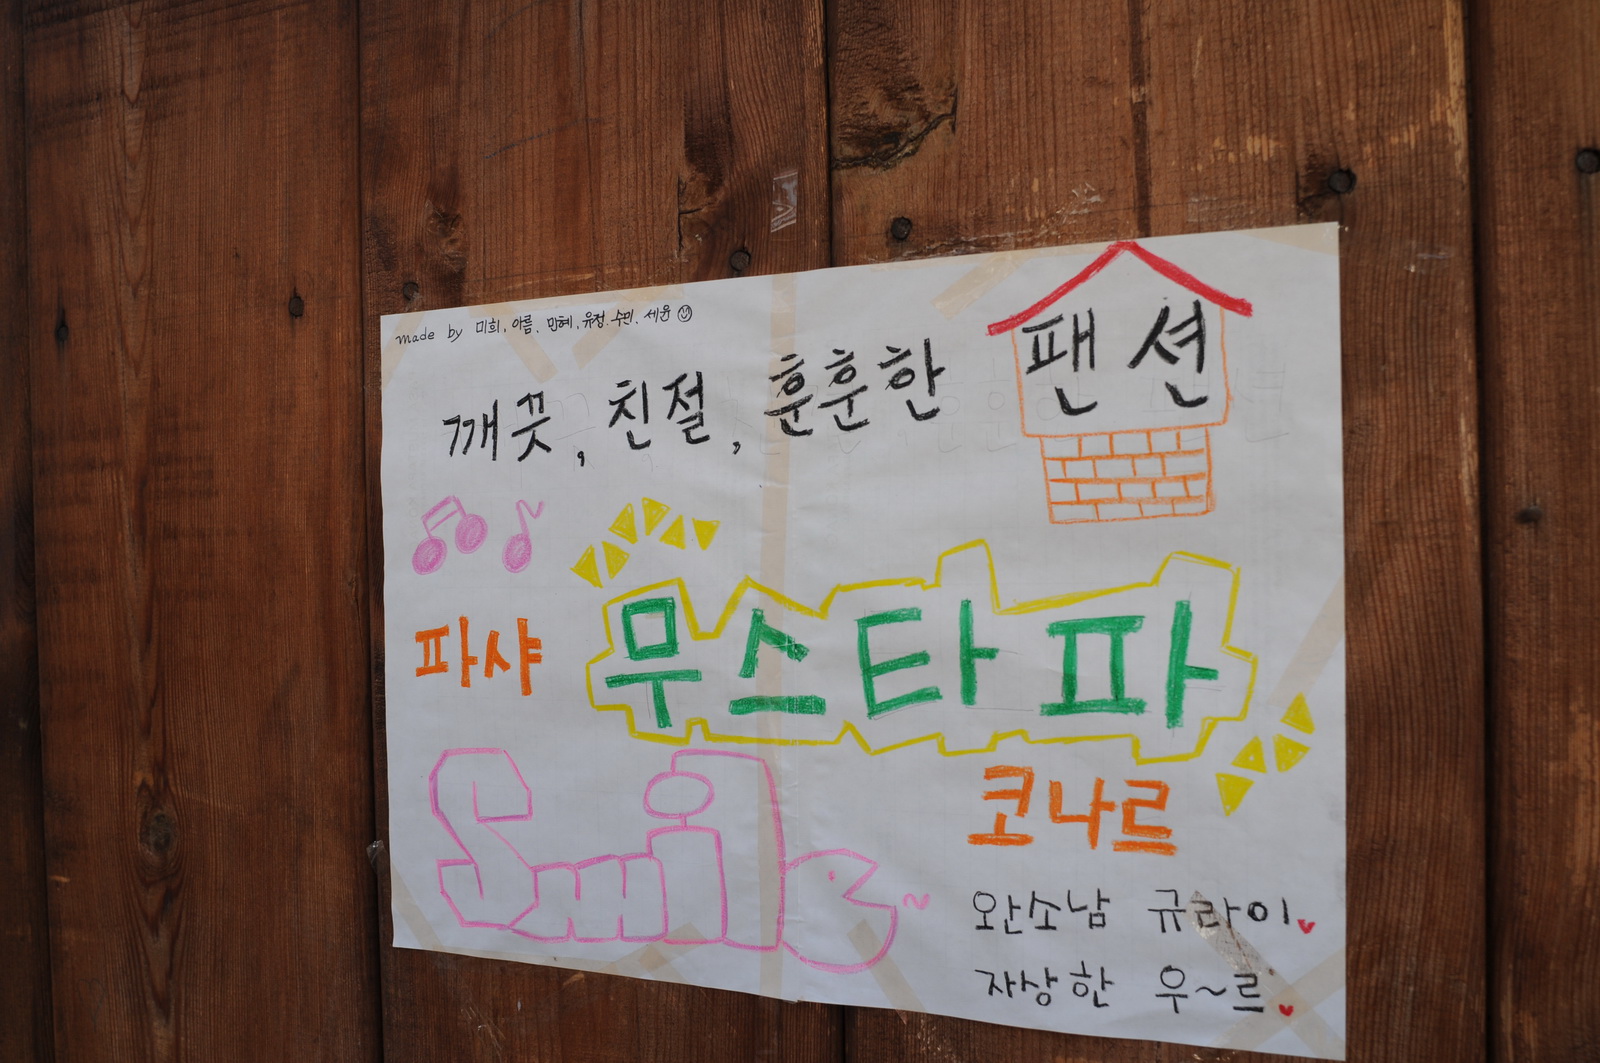 made by 미희, 아름, 민혜, 유정, 수민, 세윤
깨끗, 친절, 훈훈한 팬션
파샤 무스타파
코나르
Smile~
완소남 규라이
자상한 우~르